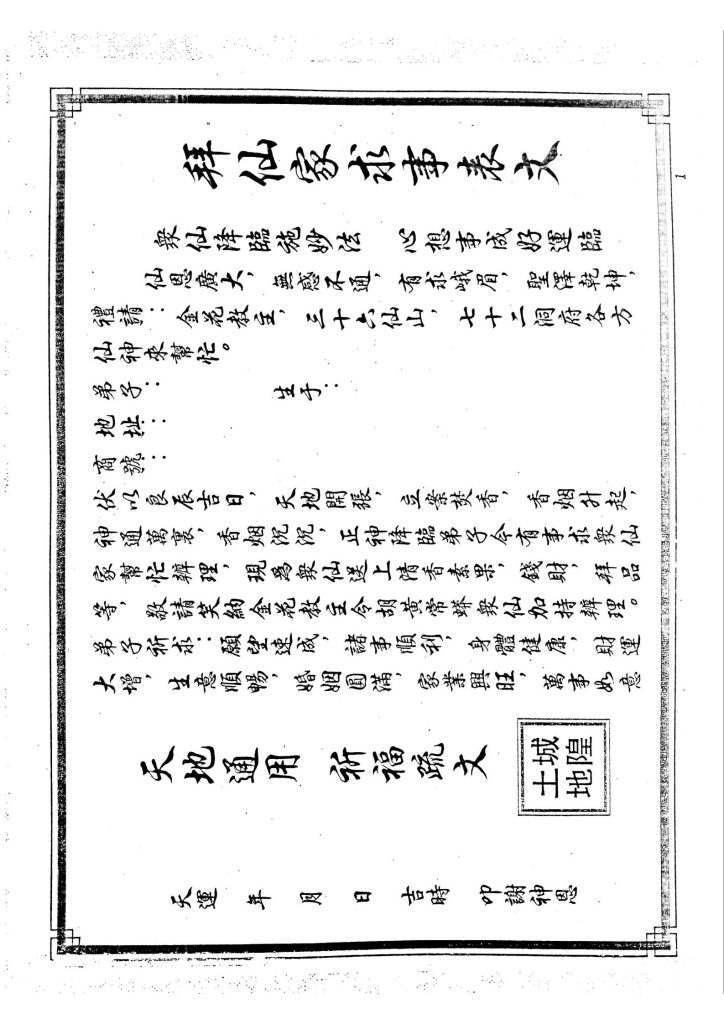 拜仙家求事表文
衆仙降臨施妙法 心想事成好運臨
仙恩廣大，無感不通，有求峨眉，聖澤乾坤，
禮請：金花教主，三十六仙山，七十二洞府各方
仙神來幫忙。
弟子： 生于：
地址：
商號：
伏以良辰吉日，天地開張，立案焚香，香烟升起，
神通萬裏，香烟沉沉，正神降臨弟子今有事求衆仙
家幫忙辦理，現爲衆仙送上清香素果，錢財，拜品
等，敬請笑納金花教主令胡黃常蟒衆仙加持辦理。
弟子祈求：願望速成，諸事順利，身體健康，財運
大增，生意順暢，婚姻圓滿，家業興旺，萬事如意
天地通用 祈福疏文
城隍
土地
天運 年 月 日 吉時 叩謝神恩
1